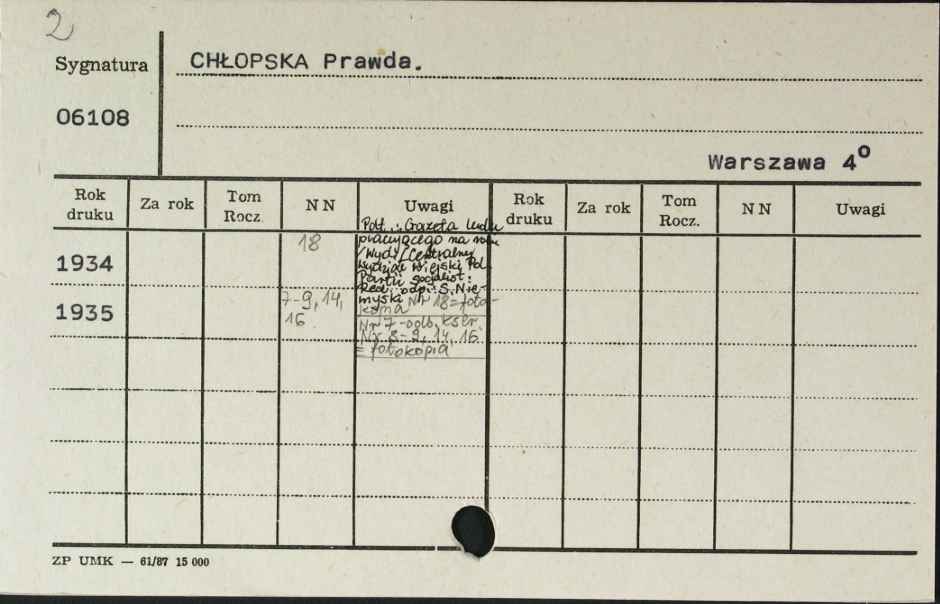 2
Sygnatura
CHŁOPSKA Prawda.
06108
Warszawa 4°
Rok druku Za rok Tom Rocz. NN Uwagi Rok druku Za rok Tom Rocz. NN Uwagi
1934 18
Podt.: Gazeta ludu
pracującego na wsi
/Wyd./Centralny
Wydział Wiejski Pol.
Partii Socjalist.
Red. odp.: S. Nie-
myski Nr 18=foto-
kopia
1935 7-9, 14,
16
Nr 7-odb. kser.
Nr 8-9, 14, 16
= fotokopia
ZP UMK — 61/87 15 000